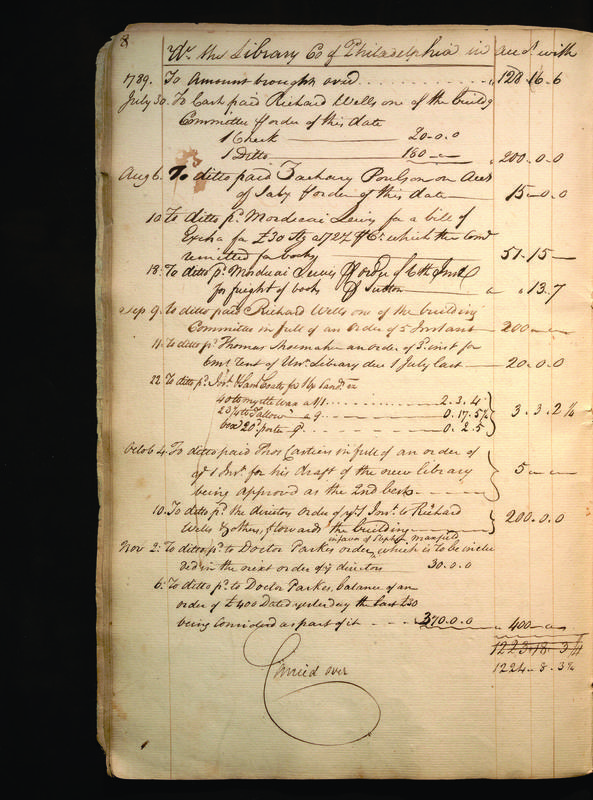 8
Dr. the Library Co of Philadelphia in acct. with
1789. To Amount brought over 128.16.6
July 30. To Cash paid Richard Wells one of the buildg
Committee order of this date
1 Check 20-0-0
1 Ditto 180 200.0.0
Aug 6. To ditto paid Zachary Poulson on Acct
of Saly order of this date 15-0-0
10. To ditto pd. Mordecai Lewis for a bill of
Excha for £30 Stg a 72½ Ct. which the
remitted for books 51.15
18. To ditto pd. Mordecai Lewis order of 6th Inst
for freight of books Sutton 13.7
Sep 9. to ditto paid Richard Wells one of the building
Committee in full of an Order of 5 Instant 200
11. To ditto pd. Thomas Shoemaker an order of 5. inst for
6 ms. rent of Library due 1 July last 20.0.0
22 To ditto pd. Jos. & Saml. Coates for
40 myrtle wax a 1/1 2.3.4
Tallow a 9 0.17.5½ 3.3.2¼
box 20d. porter 9d. 0.2.5
Octob 4. To ditto paid Thos Carstairs in full of an order of
1 Inst. for his draft of the new library 5
being approvd as the 2nd best
10. To ditto pd. the directors order of Inst. to Richard
Wells & others, towards the building 200.0.0
in favor of Stephen Maxfield
Nov 2: To ditto pd. to Doctor Parkes order, which is to be inclu
ded in the next order of ye directors 30.0.0
6: To ditto pd. to Doctor Parkes, balance of an
order of £400 Dated yesterday the last £30
being considered as part of it 370.0.0 400
1223.18.3¼
1224.8.3¾
Carried over